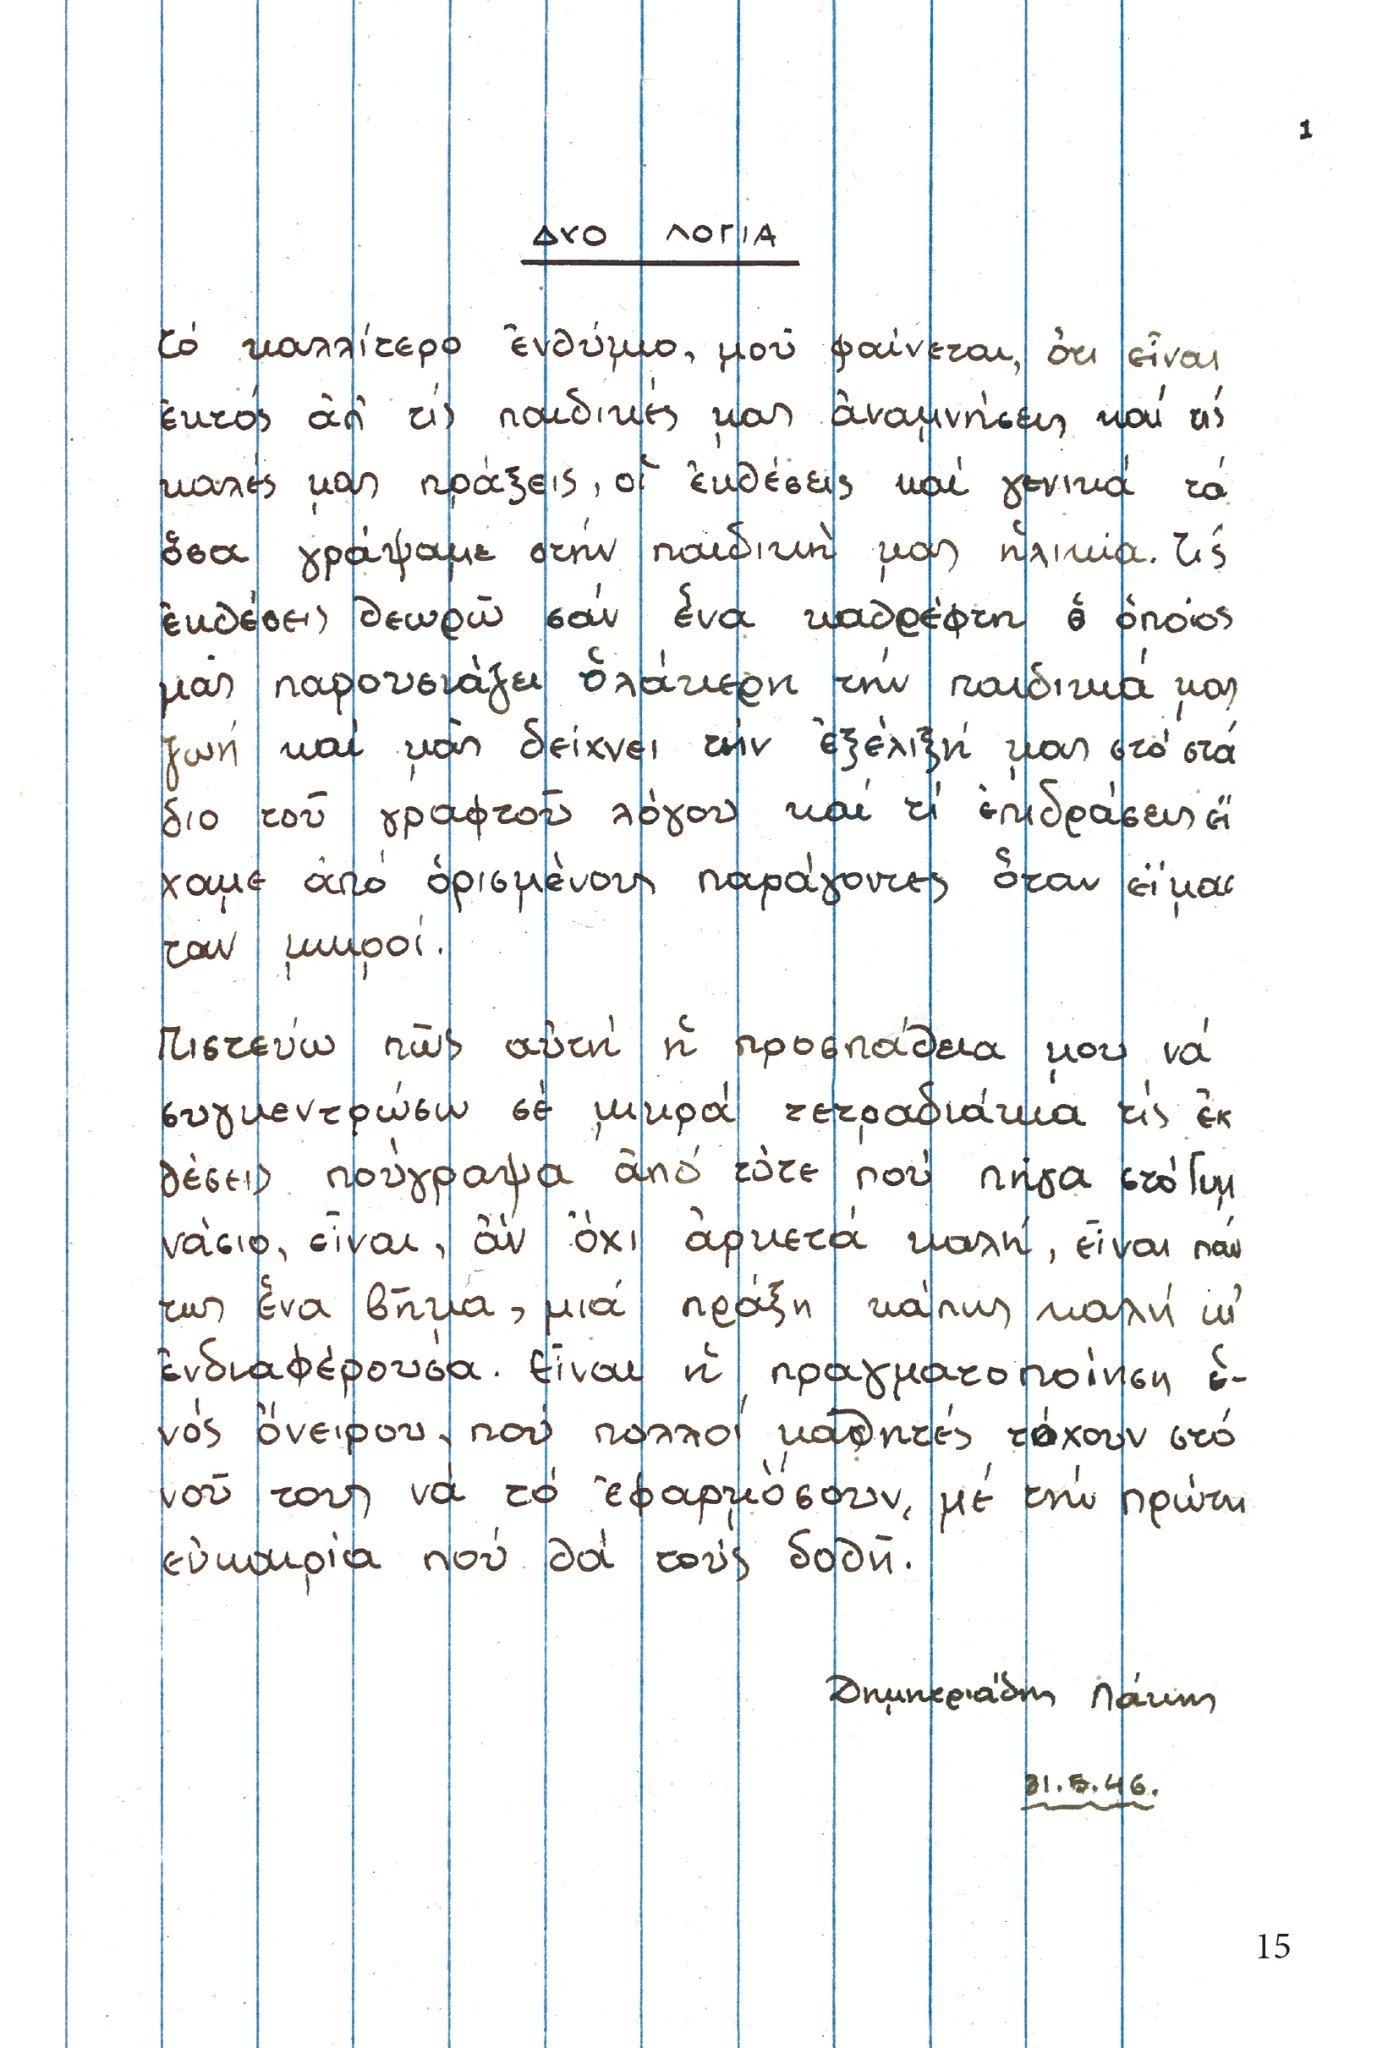 1
ΔΥΟ ΛΟΓΙΑ
Τό καλλίτερο ἐνθύμιο, μοῦ φαίνεται, ὅτι εἶναι
ἐκτός ἀπ' τίς παιδικές μας ἀναμνήσεις καί τίς
καλές μας πράξεις, οἱ ἐκθέσεις καί γενικά τά
ὅσα γράψαμε στήν παιδική μας ἡλικία. Τίς
ἐκθέσεις θεωρῶ σάν ἕνα καθρέφτη ὁ ὁποῖος
μᾶς παρουσιάζει ὁλάκερη τήν παιδικά μας
ζωή καί μᾶς δείχνει τήν ἐξέλιξή μας στό στά
διο τοῦ γραφτοῦ λόγου καί τί ἐπιδράσεις εἴ
χαμε ἀπό ὁρισμένους παράγοντες ὅταν εἴμασ
ταν μικροί.
Πιστεύω πῶς αὐτή ἡ προσπάθεια μου νά
συγκεντρώσω σέ μικρά τετραδιάκια τίς ἐκ
θέσεις πούγραψα ἀπό τότε πού πῆγα στό Γυμ
νάσιο, εἶναι, ἄν ὄχι ἀρκετά καλή, εἶναι πάν
τως ἕνα βῆμα, μιά πράξη κάπως καλή κι'
ἐνδιαφέρουσα. Εἶναι ἡ πραγματοποίηση ἑ-
νός ὄνειρου, πού πολλοί μαθητές τόχουν στό
νοῦ τους νά τό ἐφαρμόσουν, μέ τήν πρώτη
εὐκαιρία πού θά τούς δοθῆ.
Δημητριάδης Λάκης
31.5.46.
15